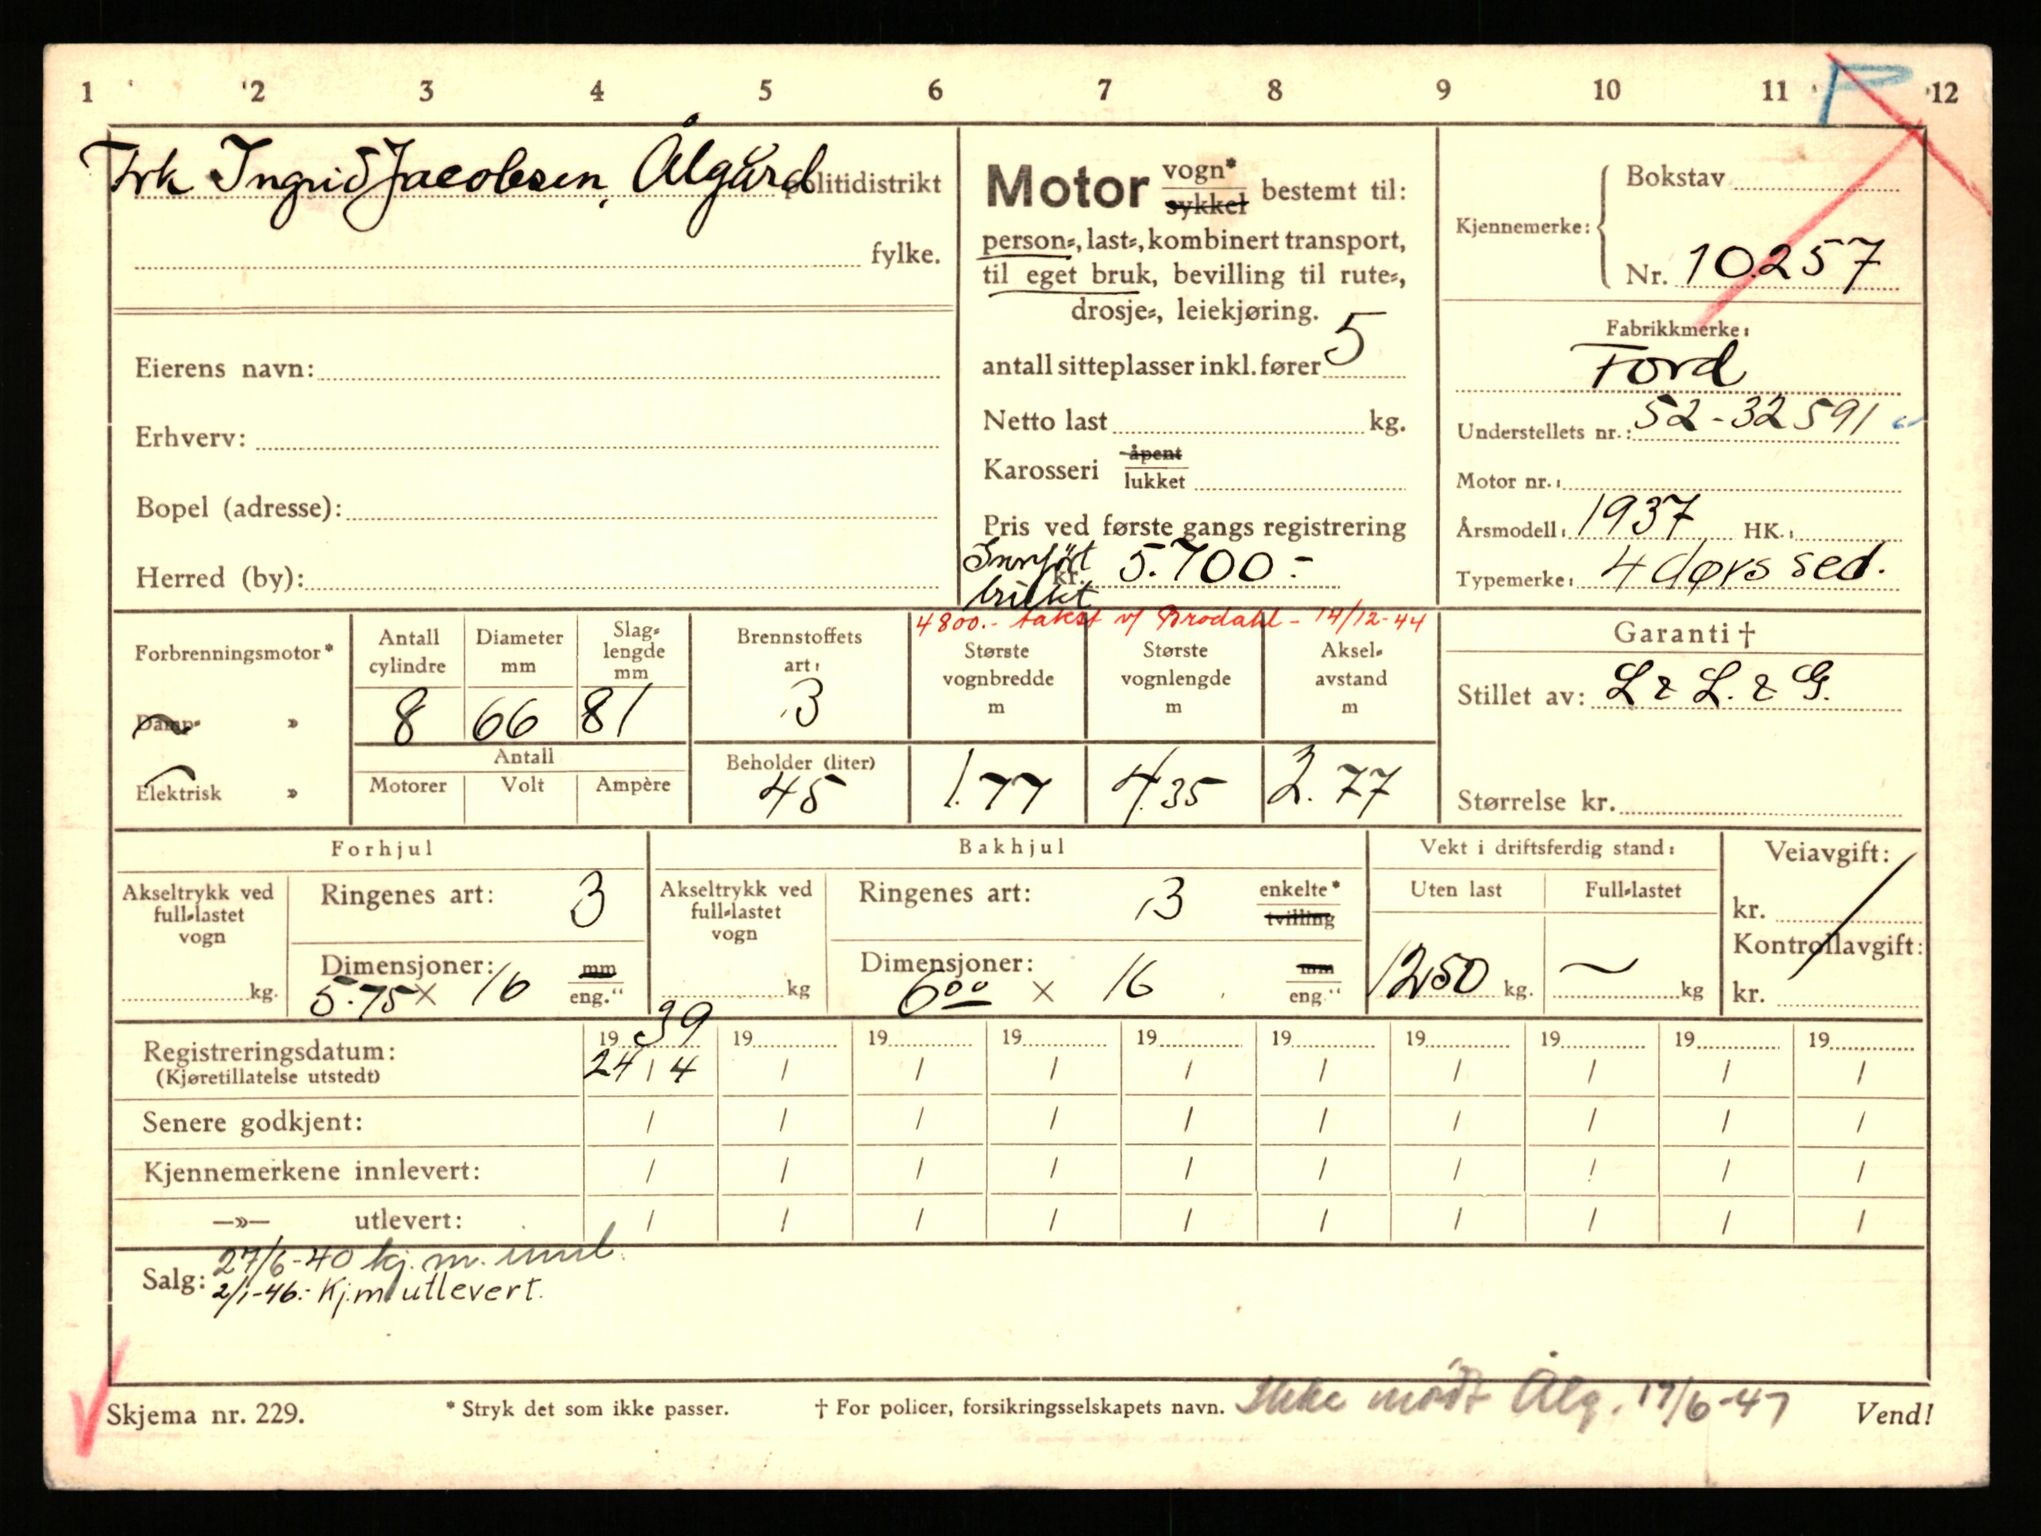 1 2 3 4 5 6 7 8 9 10 11 12
P
Frk Ingrid Jacobsen, Ålgård politidistrikt
fylke.
Eierens navn:
Erhverv:
Bopel (adresse):
Herred (by):
Motor vogn* sykkel bestemt til:
person-, last-, kombinert transport,
til eget bruk, bevilling til rute-,
drosje-, leiekjøring.
antall sitteplasser inkl. fører 5
Netto last kg.
Karosseri åpent lukket
Pris ved første gangs registrering
Innført brukt kr. 5.700.-
4800.- takst v/ Brodahl - 14/12-44
Kjennemerke: Bokstav
Nr. 10257
Fabrikkmerke:
Ford
Understellets nr.: 52-32591
Motor nr.:
Årsmodell: 1937 HK.:
Typemerke: 4 dørs sed.
Forbrenningsmotor*
Damp- »
Elektrisk »
Antall cylindre
8
Diameter mm
66
Slag-lengde mm
81
Antall
Motorer Volt Ampère
Brennstoffets art:
3
Beholder (liter)
45
Største vognbredde m
1.77
Største vognlengde m
4.35
Aksel-avstand m
2.77
Garanti †
Stillet av: L & L. & G.
Størrelse kr.
Forhjul
Akseltrykk ved full-lastet vogn
kg.
Ringenes art: 3
Dimensjoner: mm
5.75 × 16 eng."
Bakhjul
Akseltrykk ved full-lastet vogn
kg
Ringenes art: 3 enkelte* tvilling
Dimensjoner: mm
6.00 × 16 eng."
Vekt i driftsferdig stand:
Uten last Full-lastet
1250 kg. kg
Veiavgift:
kr.
Kontrollavgift:
kr.
Registreringsdatum: 19 39 19 19 19 19 19 19 19 19 19
(Kjøretillatelse utstedt) 24/4 / / / / / / / / /
Senere godkjent: / / / / / / / / / /
Kjennemerkene innlevert: / / / / / / / / / /
—»— utlevert: / / / / / / / / / /
27/6-40 kj. m. innl.
Salg: 2/1-46.- Kj.m. utlevert.
Skjema nr. 229. * Stryk det som ikke passer. † For policer, forsikringsselskapets navn. Ikke mødt Ålg. 17/6-47 Vend!